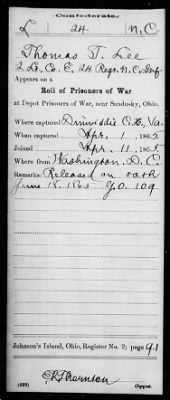 Confederate.
L 24 N.C.
Thomas T. Lee
2 Lt. Co. E, 24 Regt. N.C. Inf.
Appears on a
Roll of Prisoners of War
at Depot Prisoners of War, near Sandusky, Ohio.
Where captured Dinwiddie C.H., Va.
When captured Apr. 1, 1865
Joined Apr. 11, 1865.
Where from Washington, D.C.
Remarks: Released on oath
June 18, 1865 G.O. 109
Johnson's Island, Ohio, Register No. 2; page 91
Thornton
(639) Copyist.